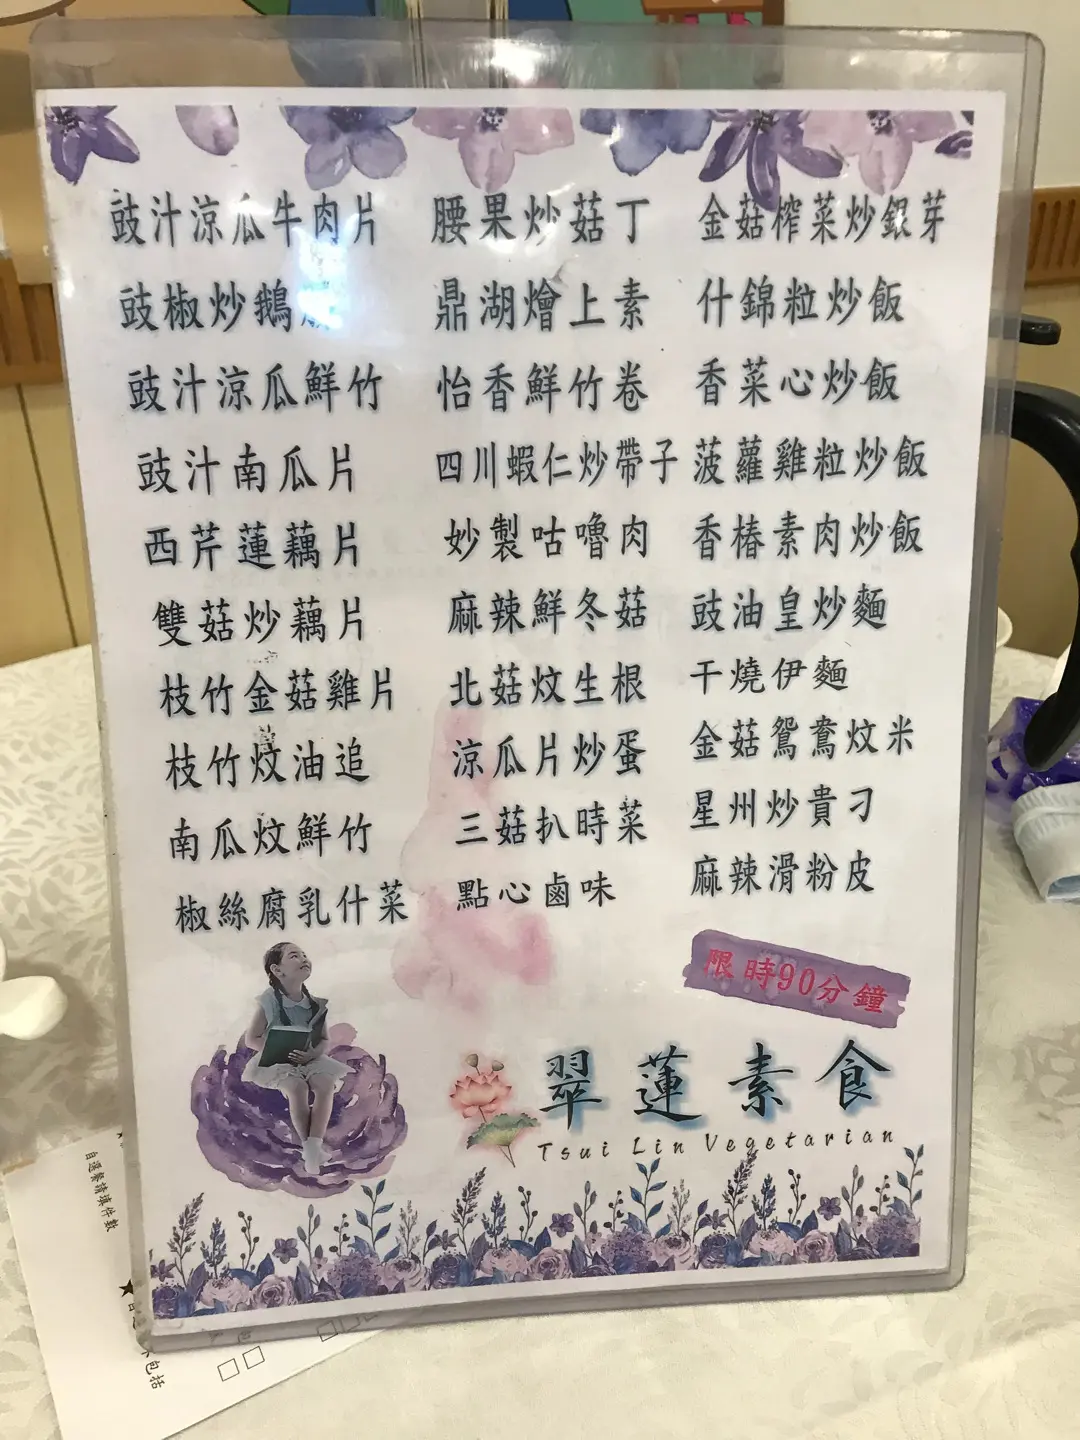 豉汁涼瓜牛肉片
豉椒炒鵝
豉汁涼瓜鮮竹
豉汁南瓜片
西芹蓮藕片
雙菇炒藕片
枝竹金菇雞片
枝竹炆油追
南瓜炆鮮竹
椒絲腐乳什菜
腰果炒菇丁
鼎湖燴上素
怡香鮮竹卷
四川蝦仁炒帶子
妙製咕嚕肉
麻辣鮮冬菇
北菇炆生根
涼瓜片炒蛋
三菇扒時菜
點心鹵味
金菇榨菜炒銀芽
什錦粒炒飯
香菜心炒飯
菠蘿雞粒炒飯
香椿素肉炒飯
豉油皇炒麵
干燒伊麵
金菇鴛鴦炆米
星州炒貴刁
麻辣滑粉皮
限時90分鐘
翠蓮素食
Tsui Lin Vegetarian
自選餐請填件數
包括